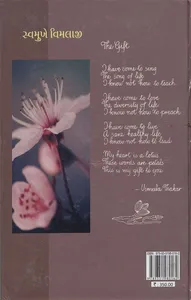 સ્વમુખે વિમલાજી
The Gift
I have come to sing
The song of life
I know not how to teach.
I have come to love
The diversity of life
I know not how to preach
I have come to live
A pure healthy life
I know not how to lead
My heart is a lotus
These words are petals
This is my gift to you
- Vimala Thakar